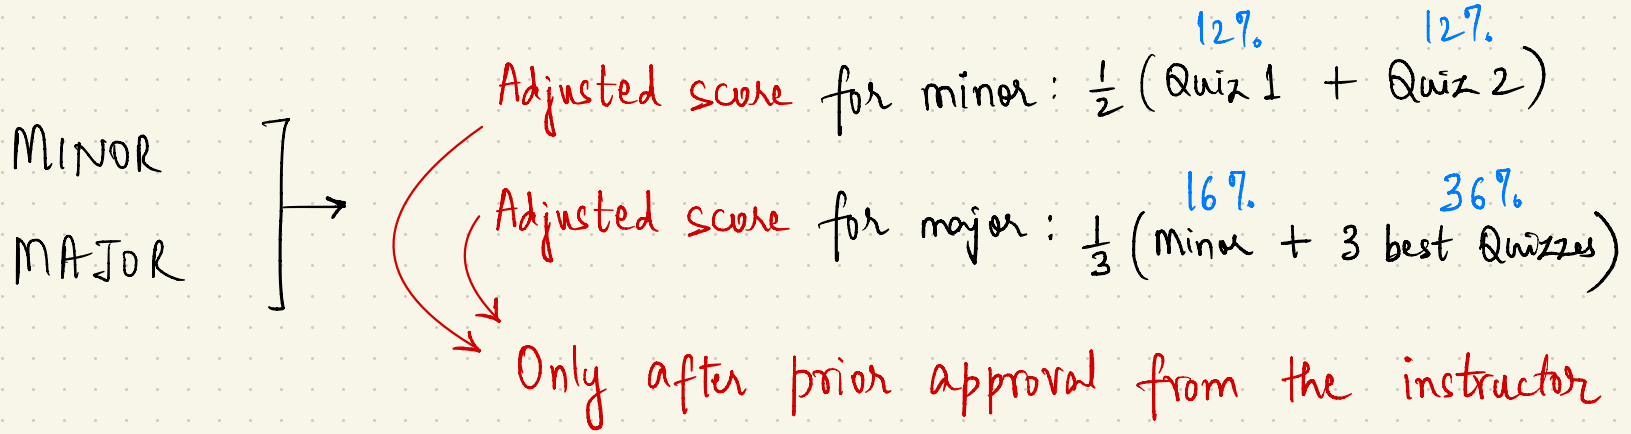 12% 12%
Adjusted score for minor: 1/2 (Quiz 1 + Quiz 2)
MINOR
16% 36%
Adjusted score for major: 1/3 (Minor + 3 best Quizzes)
MAJOR
Only after prior approval from the instructor